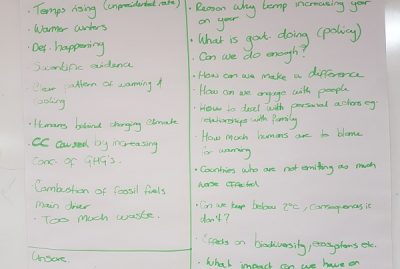 Temps rising (unpresidented rate)
· Warmer winters
· Def. happening
· Scientific evidence
· Clear pattern of warming &
cooling
· Humans behind changing climate
CC caused by increasing
conc. of GHG's.
Combustion of fossil fuels
main driver
· Too much waste.
Unsure
· Reason why temp increasing year
on year
· What is govt. doing (policy)
· Can we do enough?
· How can we make a difference
· How can we engage with people
· How to deal with personal actions eg.
relationships with family
· How much humans are to blame
for warming
· Countries who are not emitting as much
worse affected
· Can we keep below 2°C, consequences if
don't?
· Effects on biodiversity, ecosystems etc.
· What impact can we have on